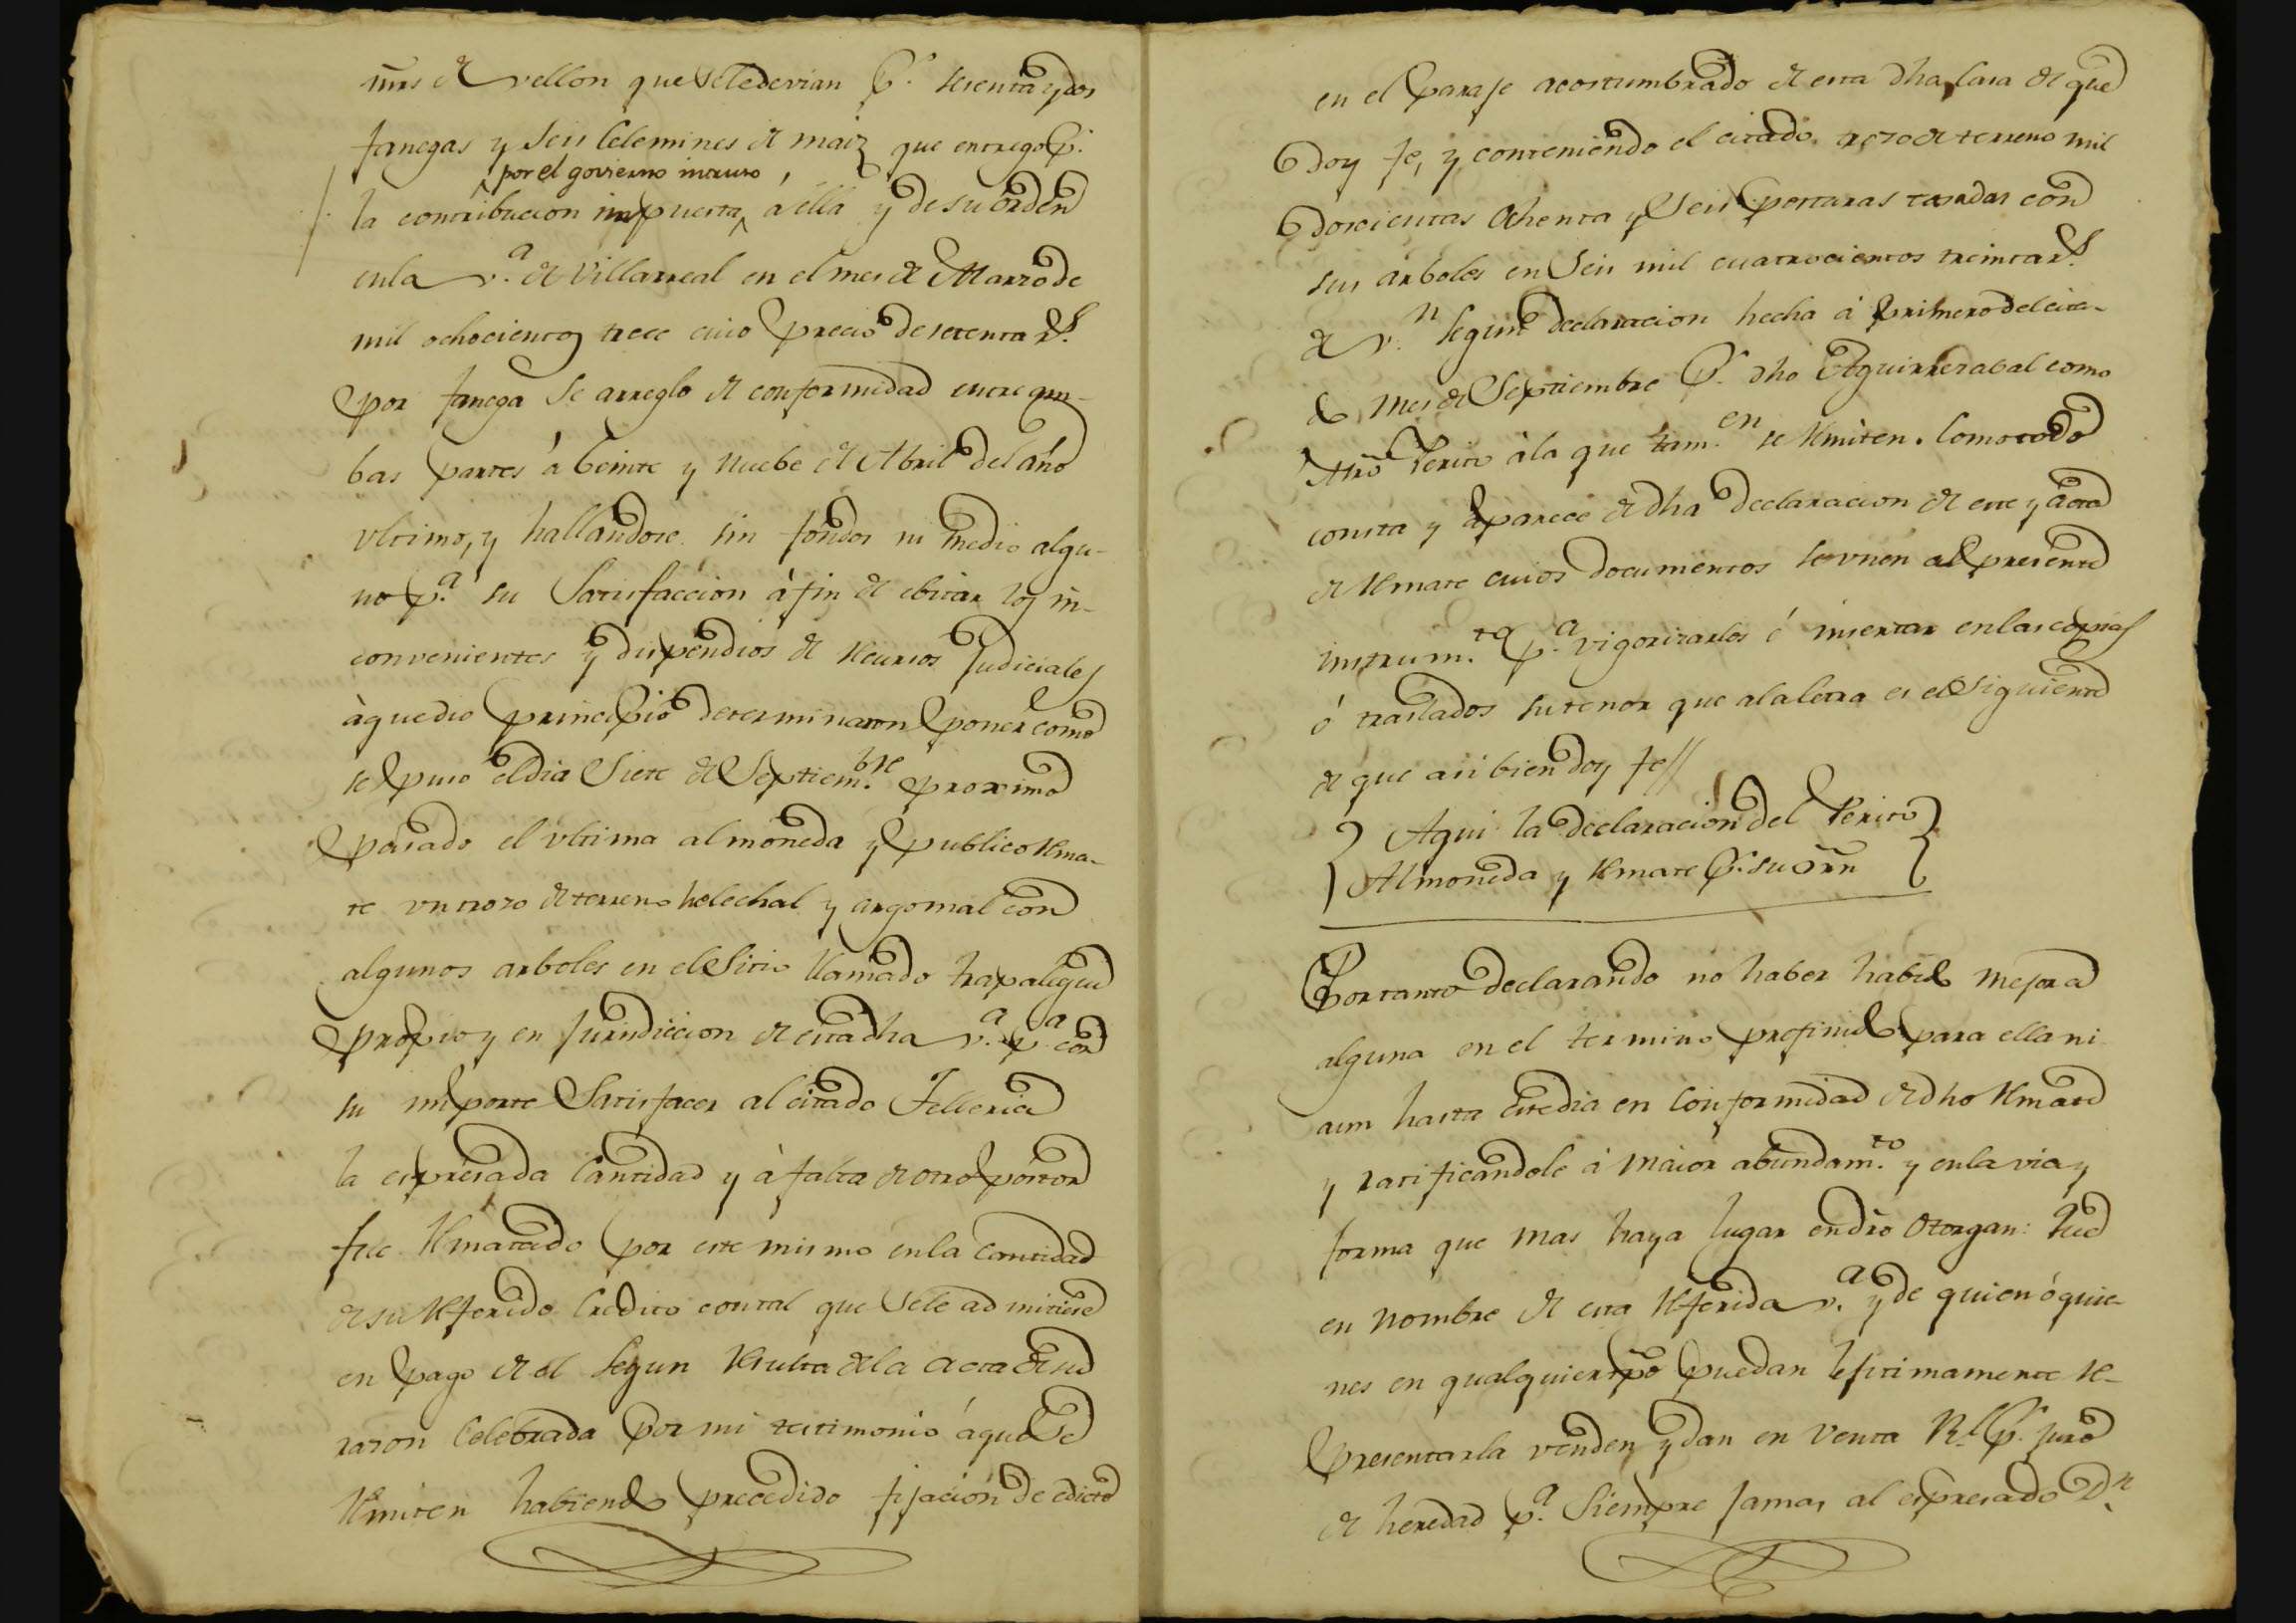 mrs de vellon que se le devian pr. sesenta y dos
fanegas y seis Celemines de maiz que entrego pr.
por el govierno intruso
la contribucion impuesta á ella y de su orden
en la v.a de Villarreal en el mes de Marzo de
mil ochocientos trece cuio precio de setenta rs.
por fanega se arreglo de conformidad entre am-
bas partes á beinte y nuebe de Abril del año
vltimo, y hallandose sin fondos ni medio algu-
no p.a su Satisfaccion à fin de ebitar los in-
convenientes y dispendios de recursos Judiciales
àque dio principio determinaron poner como
se puso el dia Siete de Septiem.bre proximo
pasado el vltima almoneda y publico rema-
te vn trozo de terreno helechal y argomal con
algunos arboles en el Sitio llamado trapalegui
propio y en Jurisdiccion de esta dha v.a p.a con
su importe Satisfacer al citado Telleria
la espresada Cantidad y à falta de otro postor
fue rematado por este mismo en la Cantidad
de su referido Credito con tal que se le admitiese
en pago de el segun resulta de la acta de su
razon Celebrada por mi testimonio á que se
remiten habiendo precedido fijacion de edicto
en el paraje acostumbrado de esta dha, Casa de que
doy fe, y conteniendo el citado trozo de terreno mil
doscientas ochenta y seis posturas tasadas con
sus árboles en Seis mil cuatrocientos treinta rs.
de v.n segun declaracion hecha á primero del cita-
do mes de Septiembre pr. dho Aguirrezabal como
Mro Perito à la que tam.en se remiten. Como todo
consta y aparece de dha declaracion de este y acta
de remate cuios documentos se vnen al presente
instrum.to p.a vigorizarlos ó insertar en las copias
ó traslados su tenor que a la letra es el siguiente
de que asi bien doy fe//
Aqui la declaracion del Perito
Almoneda y remate pr. su orn
Por tanto declarando no haber habido mejora
alguna en el termino prefinido para ella ni
aun hasta este dia en Conformidad de dho remate
y ratificandole á maior abundam.to y en la via y
forma que mas haya lugar en dro Otorgan: Que
en nombre de esta referida v.a y de quien ó quie-
nes en qualquier tpo puedan lejitimamente re-
presentarla venden y dan en venta Rl. pr. juro
de heredad p.a Siempre Jamas al espresado Dn